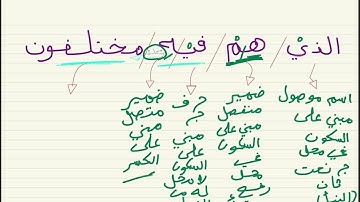 الذيْ / همْ / فيْهِ / مختلفون
اسم موصول
مبني على
السكون
في محل
جر نعت
ثان
ضمير
منفصل
مبني على
السكون
في
محل
رفع
حرف
جر
مبني
على
السكون
لا محل
له من
ضمير
متصل
مبني
على
الكسر